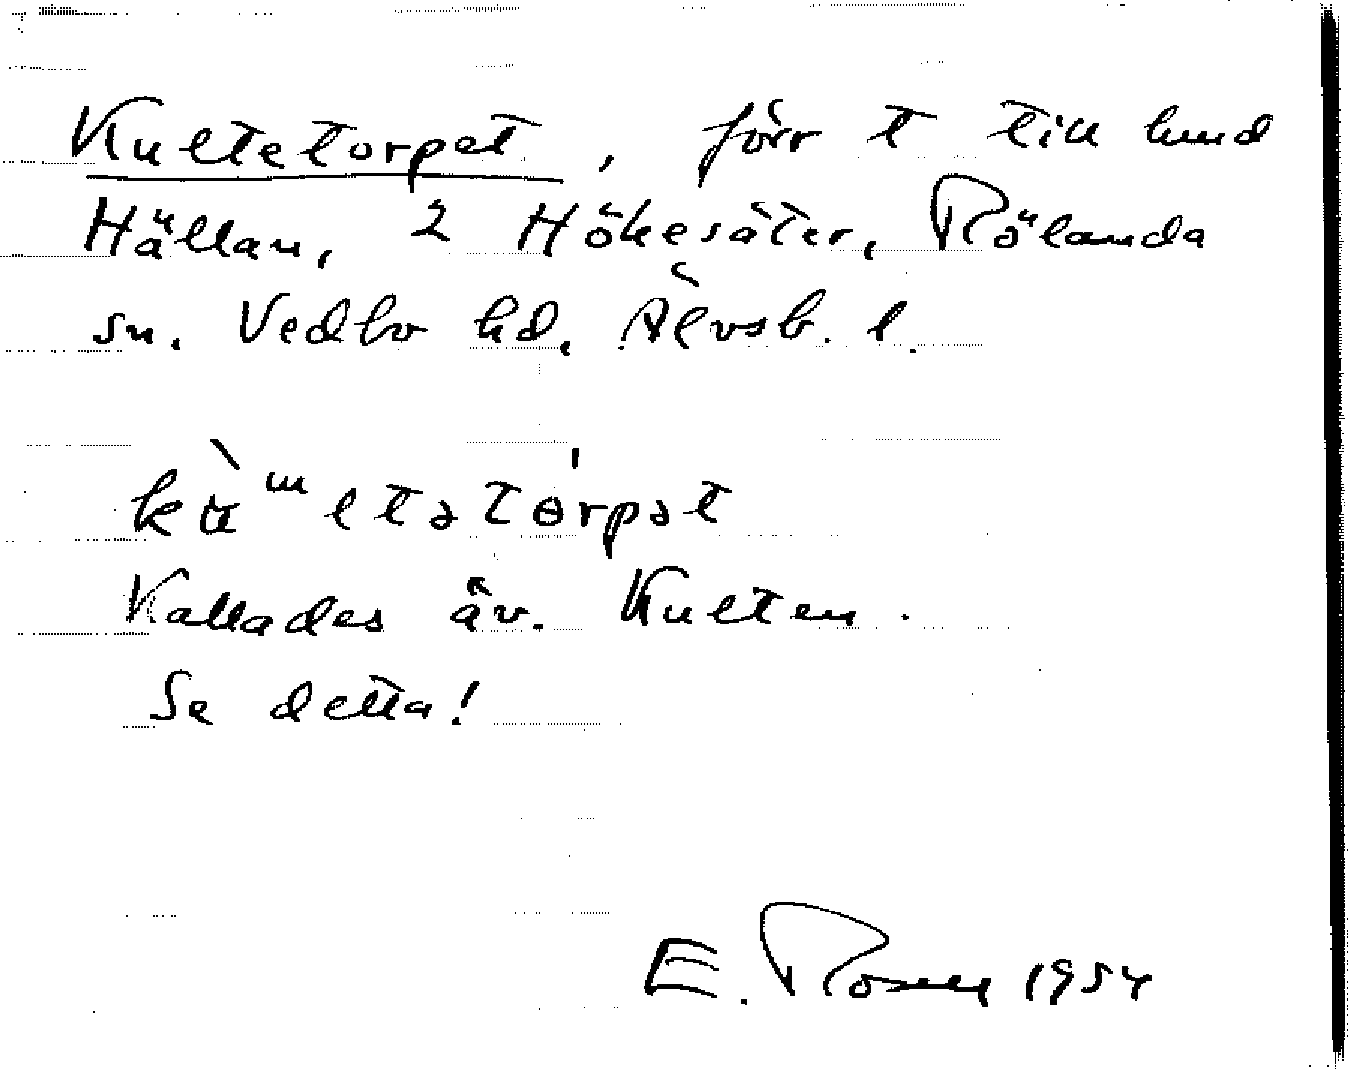 Kultetorpet, förr t till lund
Hällan, 2 Hökesäter, Rölanda
sn. Vedbo hd, Älvsb. l.
Kallades äv. Kulten.
Se detta!
E. Rosell 1954